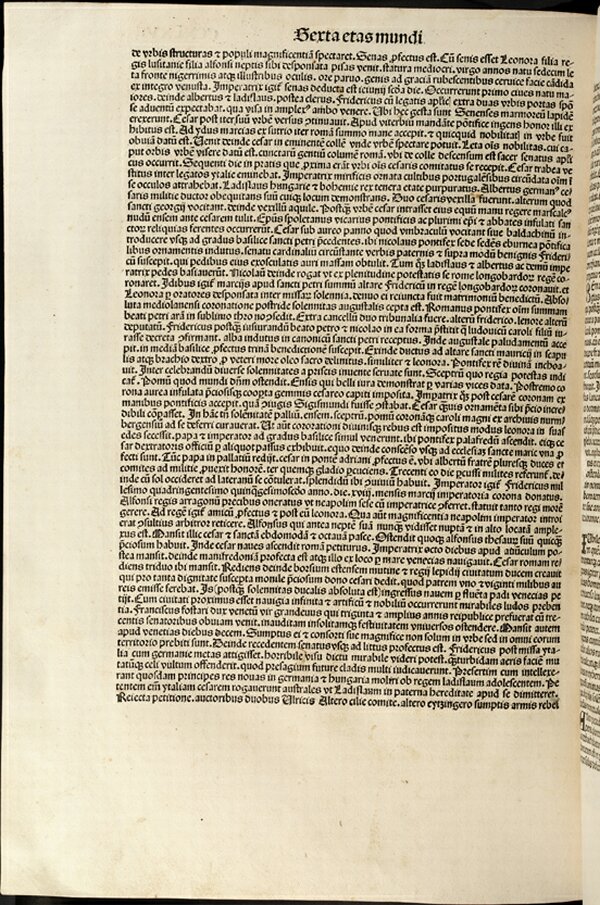 Sexta etas mundi
de vrbis structuras ⁊ populi magnificentiā spectaret. Senas ꝓfectus est. Cū senis esset Leonora filia re-
gis lusitanie filia alfonsi neptis sibi desponsata pisas venit. statura mediocri. virgo annos natu sedecim le
ta fronte nigerrimis atqꝫ illustribus oculis. ore paruo. genis ad graciā rubescentibus ceruice facie cādida
ex integro venusta. Imperatrix igit̉ senas deducta est iocūdissōa die. Occurrerunt primo ciues natu ma-
iores. deinde albertus ⁊ ladislaus. postea clerus. Fridericus cū legatis aplīcꝭ extra duas vrbis portas spōsē
se aduentū expectabat. qua visa in amplexꝰ ambo venere. Ubi hec gesta sunt Senenses marmoreū lapidē
erexerunt. Cesar post iter suū vrbē versus ꝯtinuauit. Apud viterbiū mandāte pōtifice ingens honor illi ex
hibitus est. Ad ydus marcias ex sutrio iter romā summo mane accepit. ⁊ quicquid nobilitatꝭ in vrbe fuit
obuiā datū est. Uenit deinde cesar in eminentē collē vnde vrbē spectare potuit. Leta oīs nobilitas. cui ca-
put orbis vrbē visere datū est. cunctarū gentiū columē romā. vbi de colle descensum est sacer senatus aplīcus
cus occurrit. Sequenti die in pratis que ꝓxima erāt vrbi oīs cesaris comitatus se recepit. Cesar trabea ve
stitus inter legatos ytalie eminebat. Imperatrix mirificis ornata cultibus portugalēsibus circūdata oīm ī
se occulos attrahebat. Ladislaus hungarie ⁊ bohemie rex tenera etate purpuratus. Albertus germanꝰ ce-
saris militie ductor obequitans suū quiqꝫ locum demonstrans. Duo cesaris vexilla fuerunt. alterum quod
sancti georgij vocitant. deinde vexillū aquile. Postqꝫ vrbē cesar intrasset eius equū manu regere marscalcꝰ
nudū ensem ante cesarem tulit. Epūs spoletanus vicarius pontificis ac plurimi epī ⁊ abbates infulati san
ctoꝝ reliquias ferentes occurrerūt. Cesar sub aureo panno quod vmbraculū vocitant siue baldachinū in-
troducere vsqꝫ ad gradus basilice sancti petri p̄cedentes. ibi nicolaus pontifex sede sedēs eburnea pōtifica
libus ornamentis indutus. senatu cardinaliū circūstante verbis paternis ⁊ supra modū benignis frideri
cū suscepit. qui pedibus eius exosculatis auri massam obtulit. Tum qꝫ ladislaus ⁊ albertus ac demū impe
ratrix pedes basiauerūt. Nicolaū deinde rogat vt ex plenitudine potestatis se rome longobardoꝝ regē co-
ronaret. Idibus igit̉ marcijs apud sancti petri summū altare fridericū in regē longobardoꝝ coronauit. et
Leonora ꝑ oratores desponsata inter missaꝝ solennia. denuo ei reiuncta fuit matrimoniū benedictū. Absol
luta mediolanensi coronatione postride solennitas augustalis cepta est. Romanus pontifex oīm summam
beati petri arā in sublimo thronosedit. Extra cancellū duo tribunalia fuere. alterū friderico. leonore alterū
deputatū. Fridericus postqꝫ iusiurandū beato petro ⁊ nicolao in ea forma p̄stitit q̄ ludouicū caroli filiū iu-
rasse decreta ꝯfirmant. alba indutus in canonicū sancti petri receptus. Inde augustale paludamentū acce
pit. in mediā basilice ꝓfectus trinā benedictionē suscepit. Exinde ductus ad altare sancti mauricij in scapu
lis atqꝫ brachio dextro ꝓ veteri more oleo sacro delinitus. similiter ⁊ leonora. Pontifex rē diuinā inchoa-
uit. Inter celebrandū diuerse solennitates a priscis inuente seruate sunt. Sceptrū quo regia potestas indi
cat̉. Pomū quod mundi dn̄m ostendit. Ensis qui belli iura demonstrat ꝑ varias vices data. Postremo co
rona aurea infulata p̄ciosisqꝫ coopta gemmis cesareo capiti imposita. Impatrix qꝫ post cesarē coronam ex
manibus pontificis accepit. quā ꝯiugis Sigismundi fuisse ꝯstabat. Cesar quouis ornamēta sibi p̄cio incre
dibili cōpasset. In hāc tn̄ solēnitatē palliū. ensem. sceptrū. pomū coronāqꝫ caroli magni ex archiuis nurm
bergensiū ad se deferri curauerat. Ut aūt coronationi diuinisqꝫ rebus est impositus modus leonora in suas
edes secessit. papa ⁊ imperator ad gradus basilice simul venerunt. ibi pontifex palafredū ascendit. eiqꝫ ce
sar dextratoris officiū ꝑ aliquot passus exhibuit. equo deinde conscēso vsqꝫ ad ecclesiaꝫ sancte marie vna ꝓ
fecti sunt. Tūc papa in pallatiū redijt. cesar in ponte adriani ꝓfectus ē. vbi albertū fratrē pluresqꝫ duces et
comites ad militie ꝓuexit honorē. ter quemqꝫ gladio ꝑcuciens. Trecenti eo die ꝑcussi milites referunt̉. de-
inde cū sol occideret ad lateranū se cōtulerat. splendidū ibi ꝯuiuiū habuit. Imperator igit̉ Fridericus mil
lesimo quadringentesimo quinqꝫgesimosecōo anno. die. xviii. mensis marcij imperatoria corona donatus.
Alfonsi regis arragonū precibus oneratus vt neapolim sese cū imperatrice ꝯferret. statuit tanto regi morē
gerere. Ad regē igit̉ amicū ꝓfectus ⁊ post eū leonora. Qua aūt magnificentia neapolim imperatoꝝ introi
erat ꝯsultius arbitror reticere. Alfonsus qui antea neptē suā nunqꝫ vidisset nuptā ⁊ in alto locatā amplex
xus est. Mansit illic cesar ⁊ sanctā ebdomodā ⁊ octauā pasce. Ostendit quoqꝫ alfonsus thesauꝝ suū quicqꝫ
p̄ciosum habuit. Inde cesar naues ascendit romā petiturus. Imperatrix octo diebus apud auūculum po-
stea mansit. deinde manfredoniā profecta est atqꝫ illo ex loco ꝑ mare venecias nauigauit. Cesar romam re-
diens triduo ibi mansit. Rediens deinde borsium estensem mutine ⁊ regij lepidij ciuitatum ducem creauit
qui pro tanta dignitate suscepta monile p̄ciosum dono cesari dedit. quod patrem vno ⁊ viginti milibus au
reis emisse ferebat. Iſs postqꝫ solennitas ducalis absoluta est ingressus nauem ꝑ flueta padi venecias pe-
tijt. Cum ciuitati proximus esset nauigia infinita ⁊ artificū ⁊ nobiliū occurrerunt mirabiles ludos preben
tia. Franciscus foscari dux venetū vir grandeuus qui triginta ⁊ amplius annis reipublice prefuerat cū tre-
centis senatoribus obuiam venit. inauditam insolitamqꝫ festiuitatem vniuersos ostendere. Mansit autem
apud venetias diebus decem. Sumptus ei ⁊ consorti sue magnifice non solum in vrbe sed in omni eorum
territorio prebiti sunt. Deinde recedentem senatus vsqꝫ ad littus profectus est. Fridericus post missa yta-
lia cum germanie metas attigisset. horribile visu dictu mirabile videri potest. qꝫturbidam aeris faciē mu
tatūqꝫ celi vultum offenderit. quod presagium future cladis multi iudicauerunt. Presertim cum intellexe-
rant quosdam principes res nouas in germania ⁊ hungaria moliri ob regem ladislaum adolescentem. Pe
tentem em̄ ytaliam cesarem rogauerunt australes vt Ladislaum in paterna hereditate apud se dimitteret.
Reiecta petitione. auctoribus duobus Ulricis Altero cilie comite. altero eytzinger sumptis armis rebel